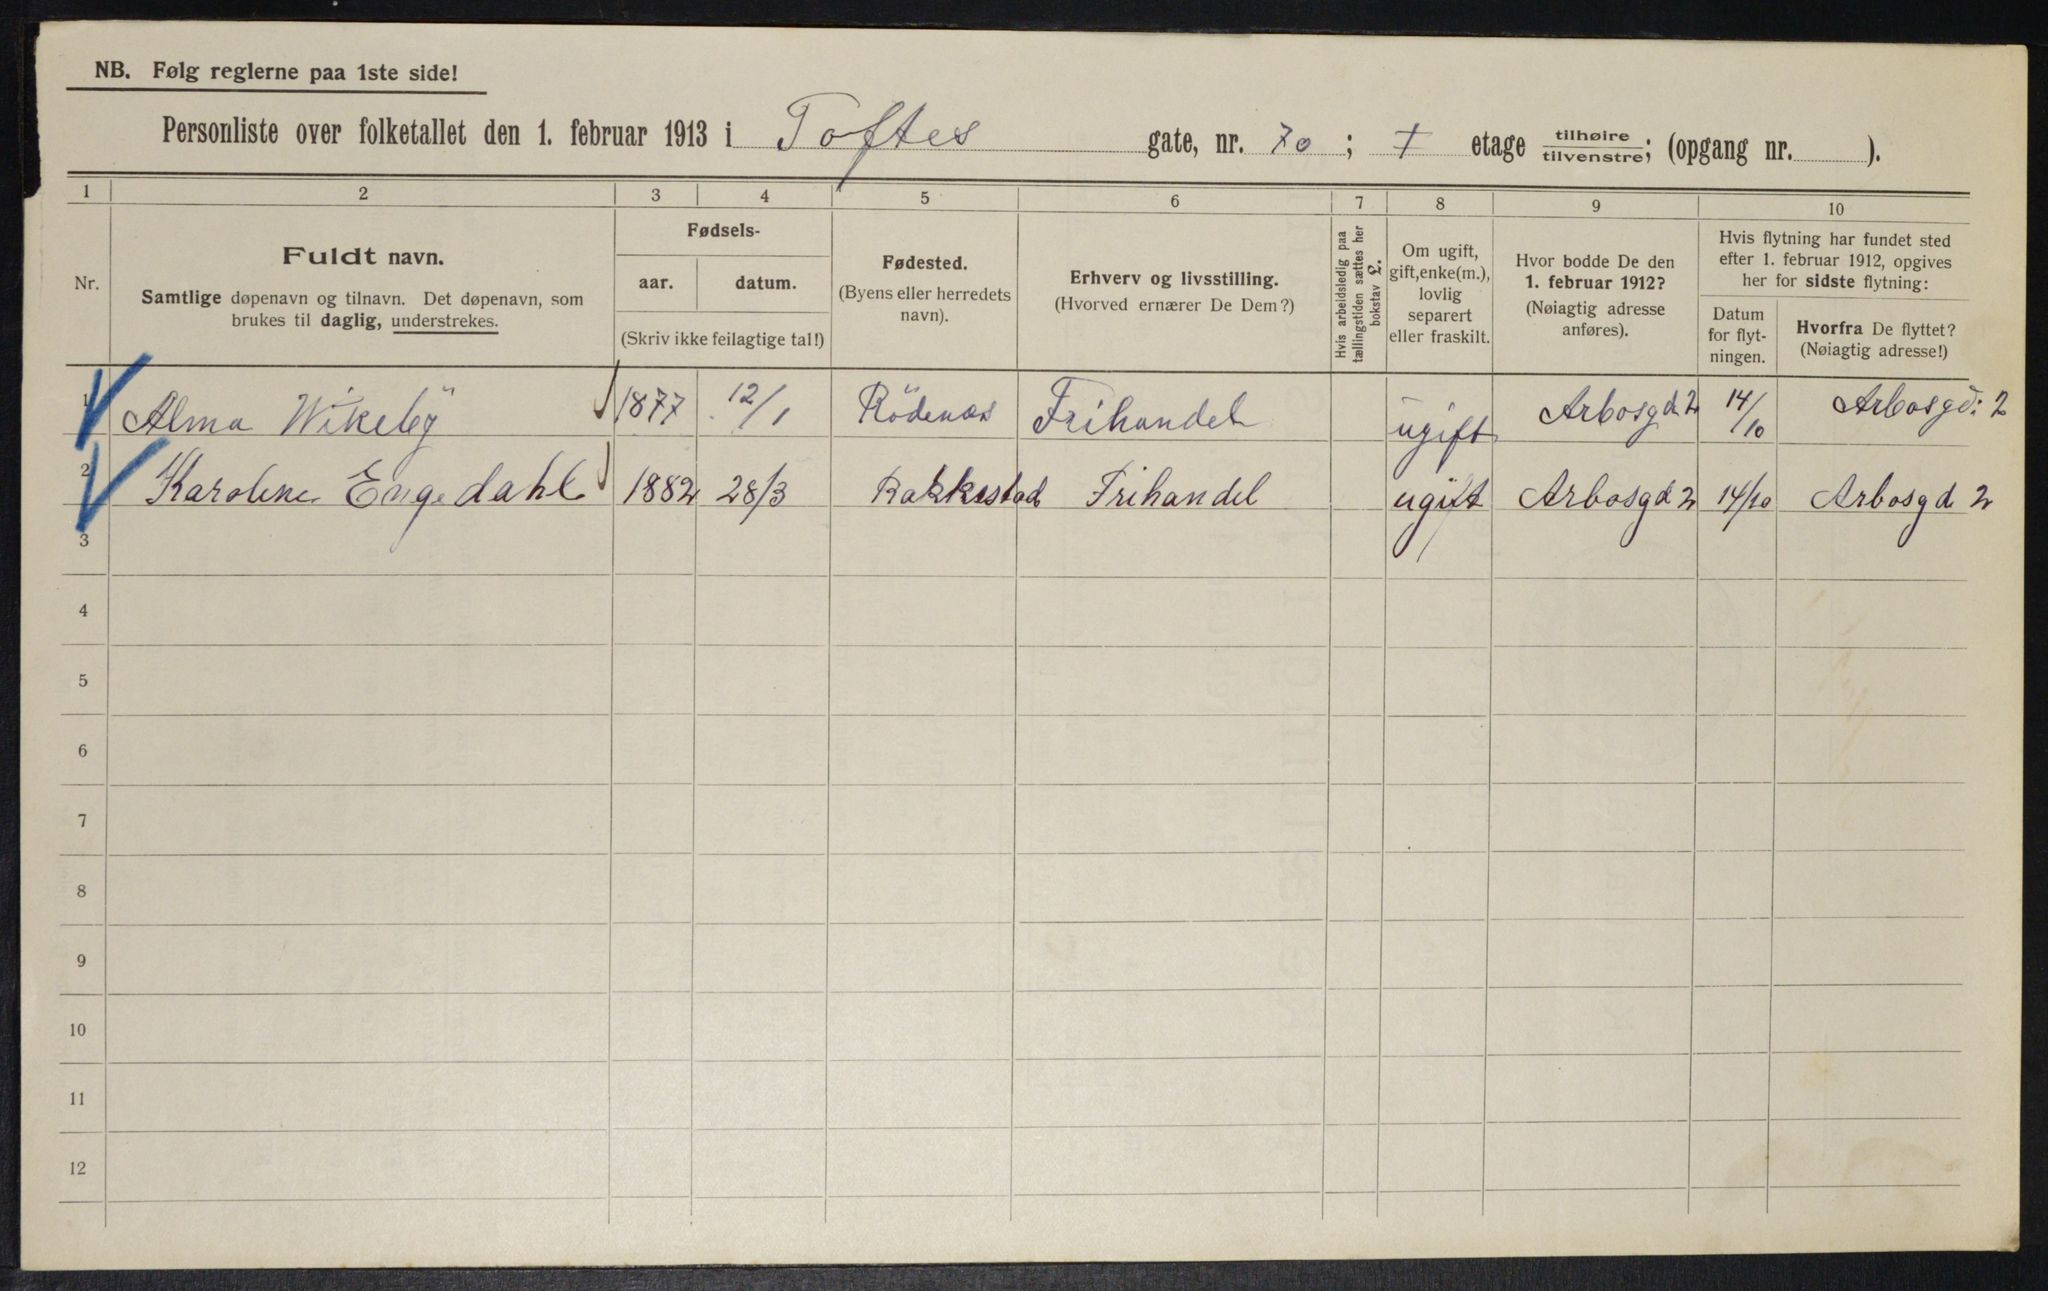 NB. Følg reglerne paa 1ste side!
Personliste over folketallet den 1. februar 1913 i Toftes gate, nr. 70; I etage tilhøire / tilvenstre; (opgang nr. ).
1 2 3 4 5 6 7 8 9 10
Nr.
Fuldt navn.
Samtlige døpenavn og tilnavn. Det døpenavn, som
brukes til daglig, understrekes.
Fødsels-
aar. datum.
(Skriv ikke feilagtige tal!)
Fødested.
(Byens eller herredets
navn).
Erhverv og livsstilling.
(Hvorved ernærer De Dem?)
Hvis arbeidsledig paa
tællingstiden sættes her
bokstav L.
Om ugift,
gift, enke(m.),
lovlig
separert
eller fraskilt.
Hvor bodde De den
1. februar 1912?
(Nøiagtig adresse
anføres).
Hvis flytning har fundet sted
efter 1. februar 1912, opgives
her for sidste flytning:
Datum
for flyt-
ningen.
Hvorfra De flyttet?
(Nøiagtig adresse!)
1 Alma Wikeby 1877 12/1 Rödenæs Frihandel ugift Arbosgd 2 14/10 Arbosgd: 2
2 Karoline Engedahl 1882 28/3 Rakkestad Frihandel ugift Arbosgd 2 14/10 Arbosgd 2
3
4
5
6
7
8
9
10
11
12